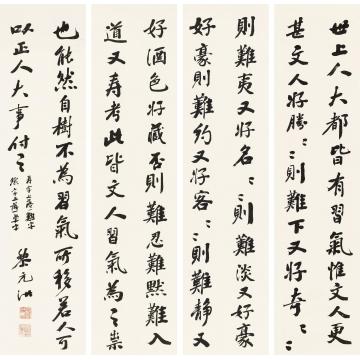 世上人大都皆有習氣文人更
甚文人好勝〻則難下又好奇〻
則難夷又好名〻則難淡又好豪
好豪則難約又好客〻則難靜又
好酒色好臧否則難忍難默難入
道又寿考此皆文人習氣為之祟
也能然自樹不為習氣所移若人可
以正人大事付之
黎元洪